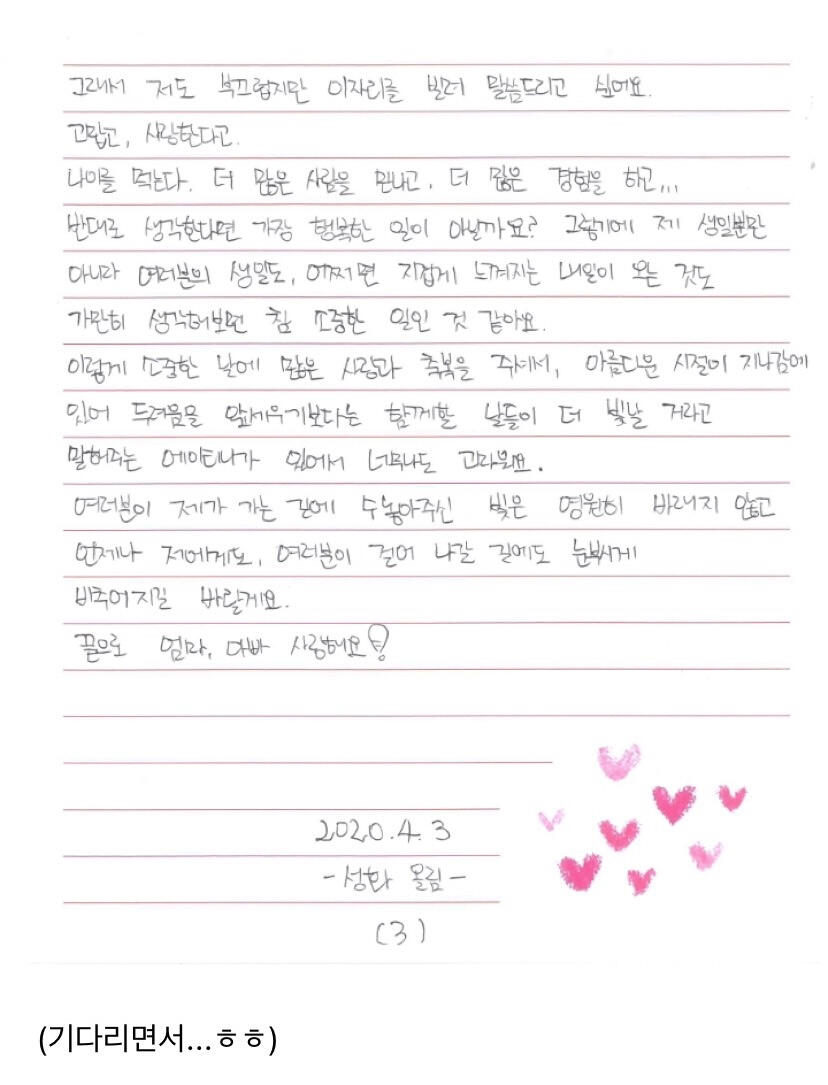 그래서 저도 부끄럽지만 이자리를 빌려 말씀드리고 싶어요.
고맙고, 사랑한다고.
나이를 먹는다. 더 많은 사람을 만나고, 더 많은 경험을 하고...
반대로 생각한다면 가장 행복한 일이 아닐까요? 그렇기에 제 생일뿐만
아니라 여러분의 생일도, 어쩌면 지겹게 느껴지는 내일이 오는 것도
가만히 생각해보면 참 소중한 일인 것 같아요.
이렇게 소중한 날에 많은 사랑과 축복을 주셔서, 아름다운 시절이 지나감에
있어 두려움을 앞세우기보다는 함께할 날들이 더 빛날 거라고
말해주는 에이티니가 있어서 너무나도 고마워요.
여러분이 제가 가는 길에 수놓아주신 빛은 영원히 바래지 않고
언제나 저에게도, 여러분이 걸어 나갈 길에도 눈부시게
비추어지길 바랄게요.
끝으로 엄마, 아빠 사랑해요
2020.4.3
-성화 올림-
(3)
(기다리면서...ㅎㅎ)